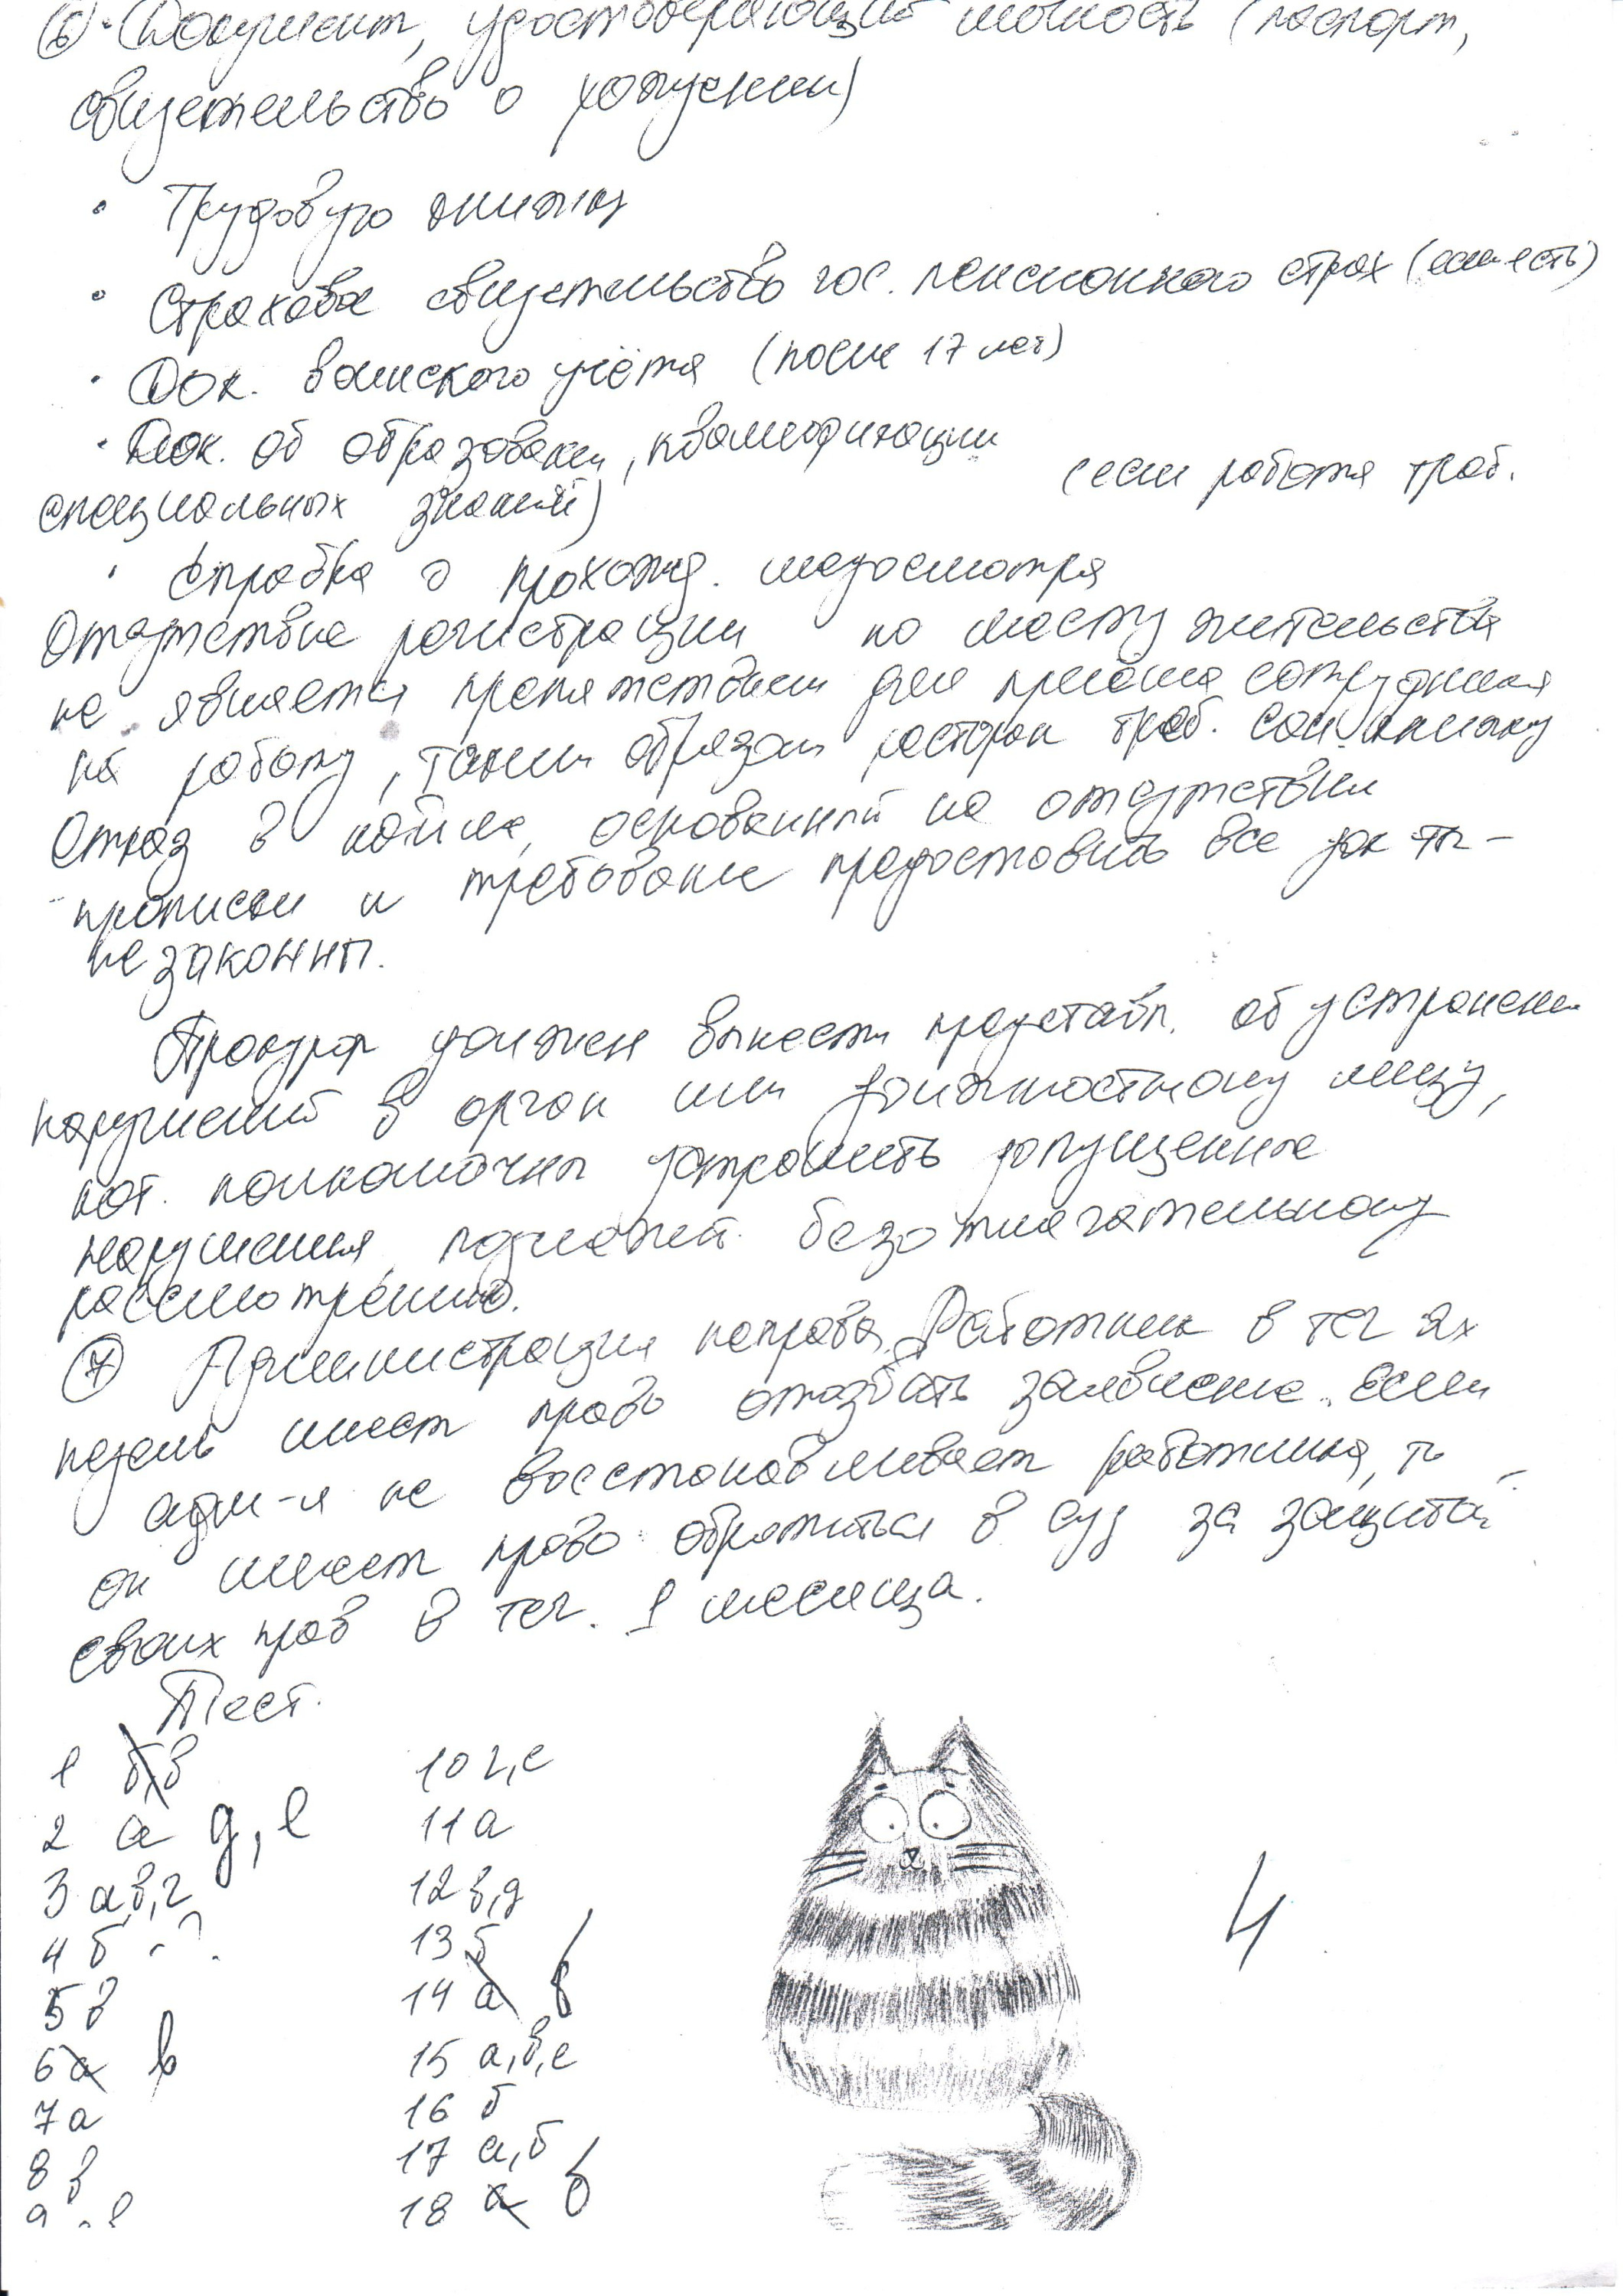 ⑥ · Документ, удостоверяющий личность (паспорт,
свидетельство о рождении)
· Трудовую книжку
· Страховое свидетельство гос. пенсионного страх (если есть)
· Док. воинского учёта (после 17 лет)
· Док. об образовании, квалификации
(если работа треб.
специальных знаний)
· Справка о прохожд. медосмотра
Отсутствие регистрации по месту жительства
не является препятствием для приёма сотрудника
на работу, таким образом,
Отказ в найме, основанный на отсутствии
прописки и требование предоставить все док-ты -
незаконны.
Прокурор должен вынести представл. об устранении
нарушений в орган или должностному лицу,
кот. полномочны устранить допущенные
нарушения, подлежит безотлагательному
рассмотрению.
⑦ Администрация неправа. Работник в теч 2х
недель имеет право отозвать заявление. Если
адм-я не восстанавливает работника, то
он имеет право обратиться в суд за защитой
своих прав в теч. 1 месяца.
Тест.
1 б, в
2 а д, е
3 а, в, г
4 б - ?
5 в
6 а в
7 а
8 в
9
10 г, е
11 а
12 в, д
13 б
14 а б
15 а, в, е
16 б
17 а, б
18 а б
4